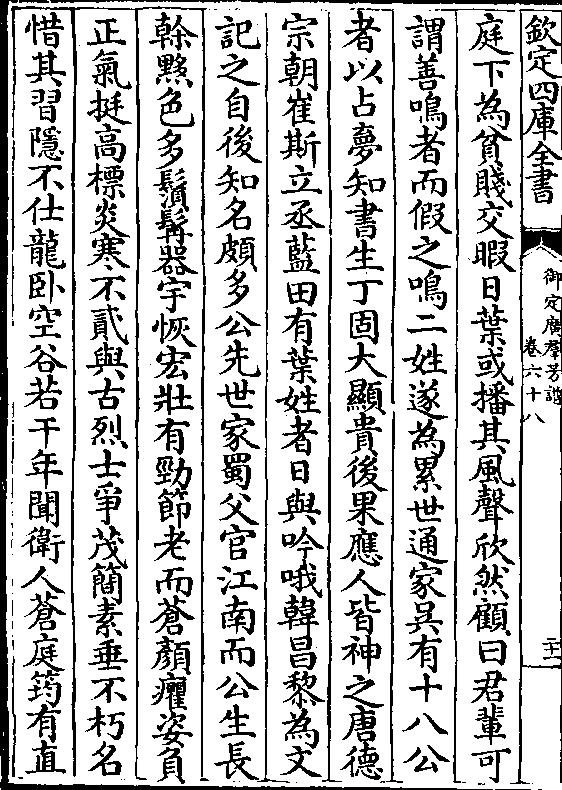 欽定四庫全書
御定廣羣芳譜
卷六十八
二十一
庭下為貧賤交暇日葉或播其風聲欣然顧曰君輩可
謂善鳴者而假之鳴二姓遂為累世通家吳有十八公
者以占夢知書生丁固大顯貴後果應人皆神之唐德
宗朝崔斯立丞藍田有葉姓者日與吟哦韓昌黎為文
記之自後知名頗多公先世家蜀父官江南而公生長
榦黟色多鬚髯器宇恢宏壯有勁節老而蒼顏癯姿負
正氣挺高標炎寒不貳與古烈士爭茂簡素垂不朽名
惜其習隱不仕龍卧空谷若干年聞衛人蒼庭筠有直